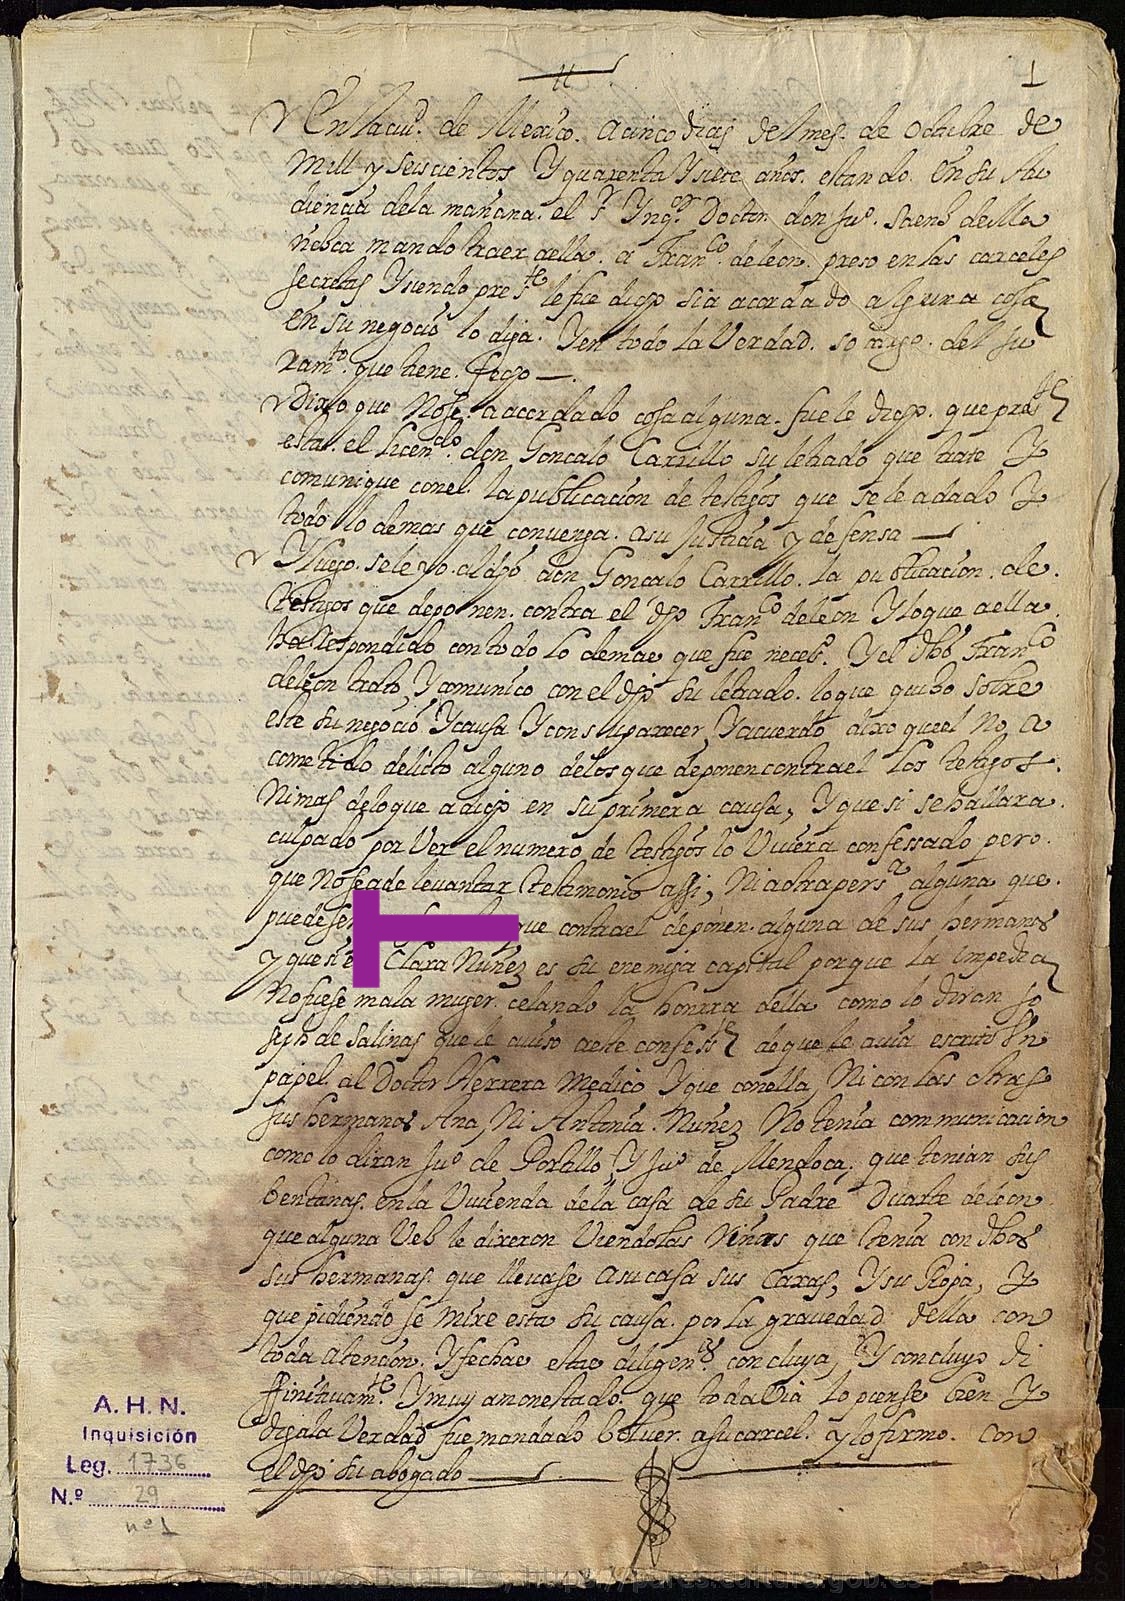 1
En la ciu.d de Mexico. a cinco dias del mes. de octubre de
mill y seiscientos y quarenta y siete años. estando. en su Au
diencia de la mañana. el sr Ynqor Doctor don Juo. Saenz de Ma
ñosca mando traer a ella. a Franco. de leon. preso en las carceles
secretas y siendo prete le fue dijo si a acordado alguna cosa
en su negocio lo diga. Y en todo la Verdad. so cargo. del Ju
ramto. que tiene. fecho
Dixo que no se a acordado cosa alguna. fuele dicho. que preste
esta. el licendo. don Gonçalo Carrillo su letrado que trate y
comunique con el. la publicacion de testigos que se le a dado y
todo lo demas que convenga. a su Justicia y defensa
Y luego. se leyo. al dho don Gonçalo Carrillo. la publicacion. de.
testigos que deponen. contra el dho Franco de leon y lo que a ella.
ha respondido con todo lo demas que fue neceso. Y el dho Franco
de leon trato, y comunico con el dho su letrado. lo que quiso sobre
este su negocio y causa y con su parecer, y acuerdo dixo que el no, a
cometido delicto alguno de los que deponen contra el los testigos.
ni mas de lo que a dicho en su primera causa, y que si se hallara.
culpado por ver el numero de testigos lo Uuiera confessado pero.
que no se a de levantar testimonio assi, ni a otra persa alguna que.
puede ser que contra el deponen. alguna de sus hermanas
y que si es Clara Nuñez es su enemiga capital porque la impedia
no fuese mala muger. celando la honrra della como lo diran Jo
seph de Salinas que le aviso a este confeste de que le avia escrito Un
papel al Doctor Herrera medico y que con ella, ni con las otras
sus hermanas Ana, ni Antonia. Nuñez no tenia communicacion
como lo diran Juo de Portillo y Juo de Mendoça, que tenian sus
bentanas. en la Vivienda de la casa de su Padre Duarte de leon
que alguna Vez le dixeron Viendolas riñas que tenia con dhas
sus hermanas. que llevase a su casa sus caxas, y su Ropa, y
que pidiendo se mire esta su causa. por la gravedad della con
toda atencion. y fechas estas diligenas concluya, y concluyo di
ffinitivamte. Y muy amonestado. que todavia lo piense bien y
diga la Verdad fue mandado bolver. a su carcel. y lo firmo. con
el dho su abogado
A. H. N.
Inquisición
Leg. 1736
N.º 29
nº 1
Archivos Estatales, https://pares.cultura.gob.es